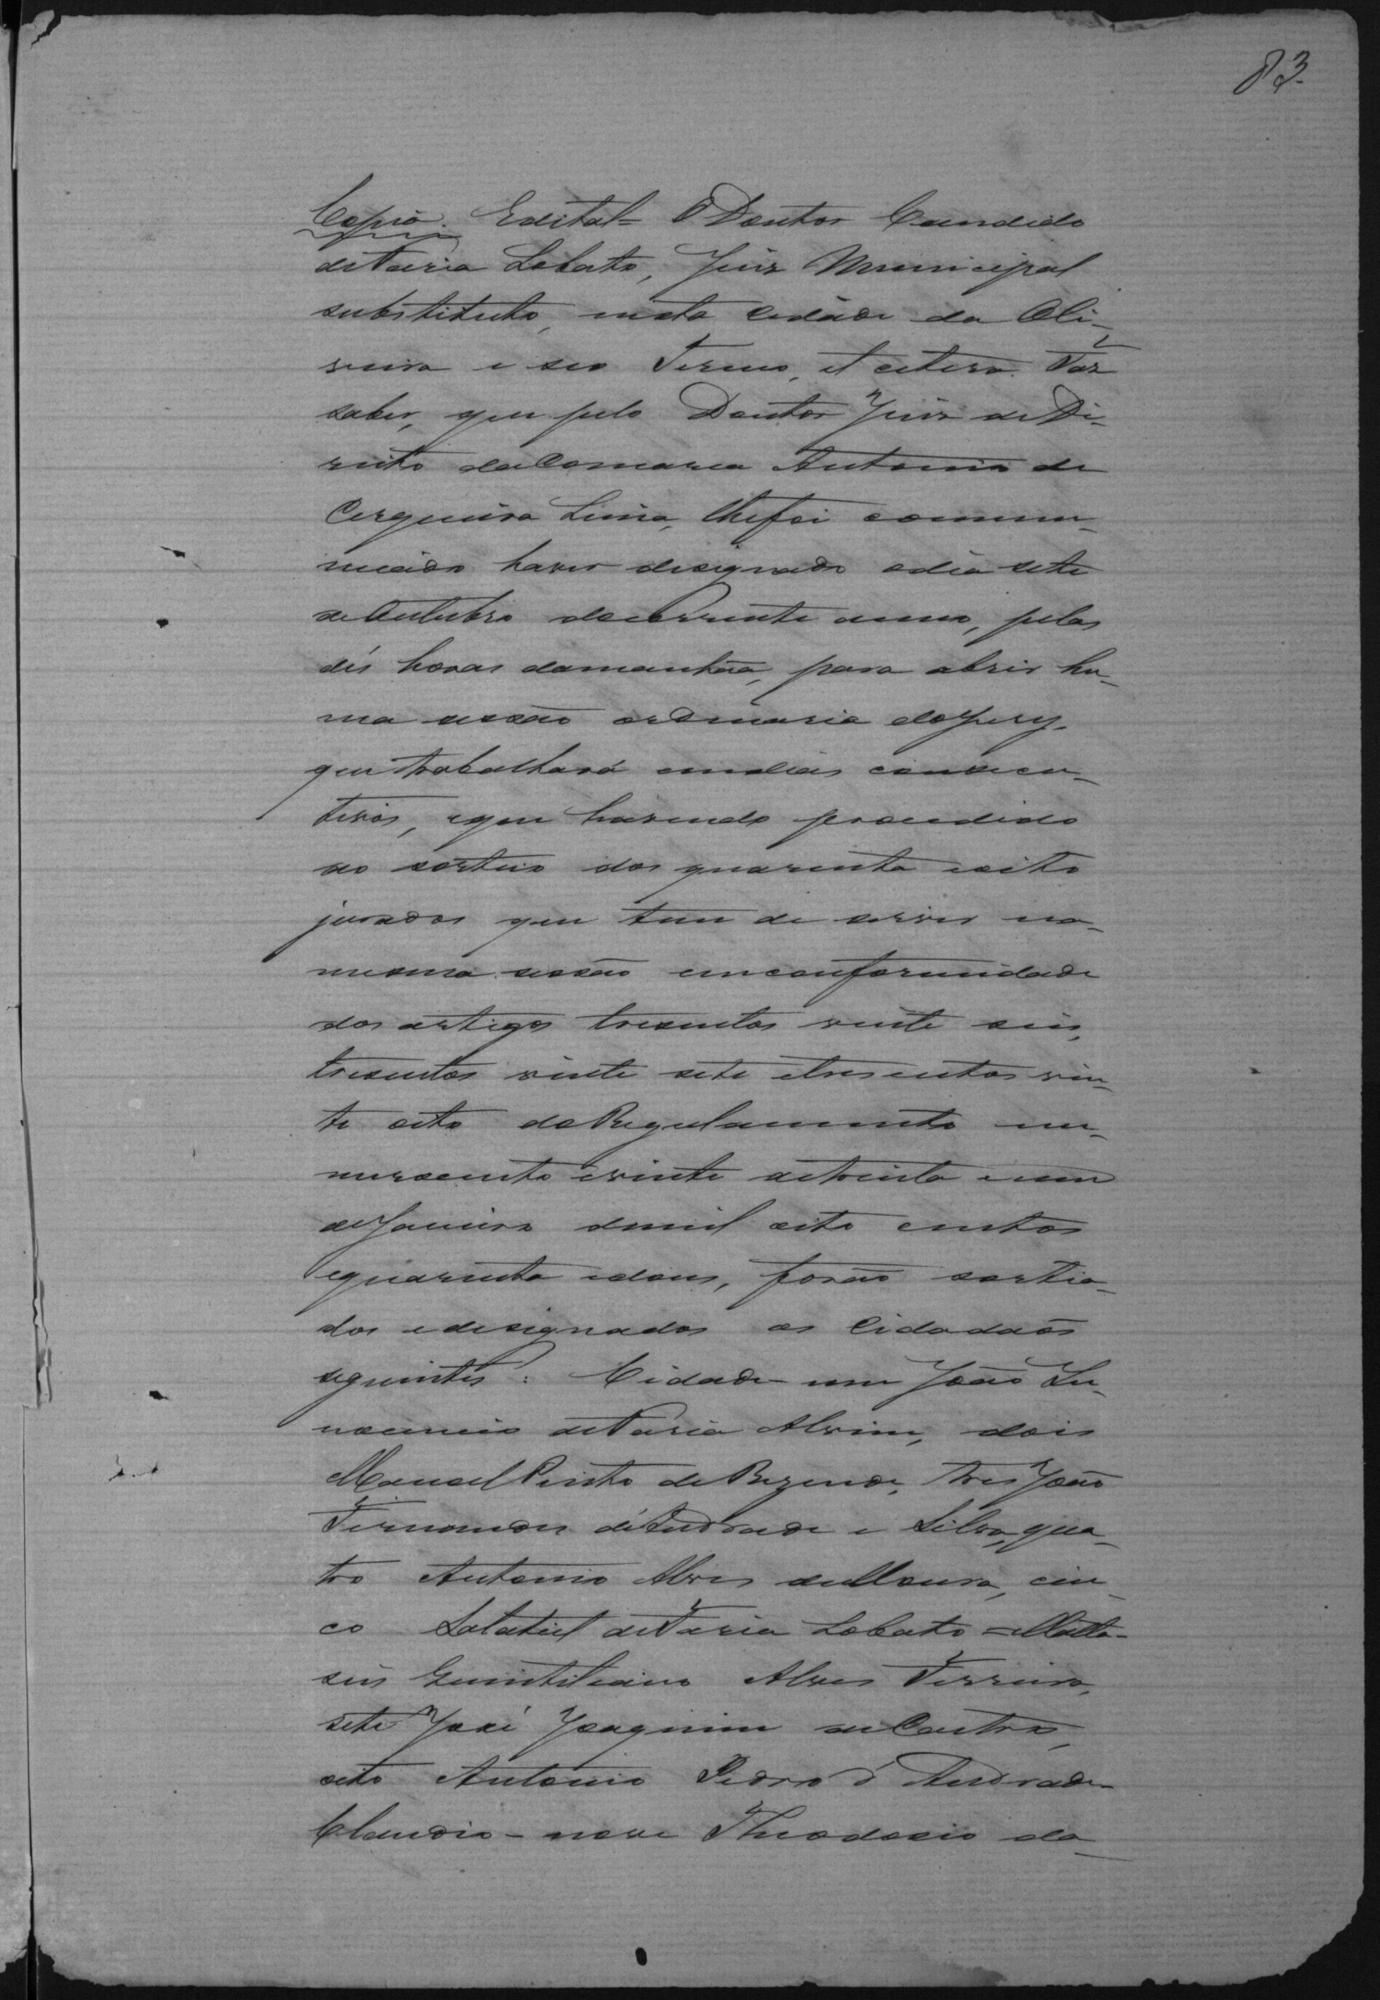 83
Copia. Edital = O Doutor Candido
de Faria Lobato, Juiz Municipal
substituto, nesta cidade da Oli-
veira e seo Termo, et cetera. Faz
saber, que pelo Doutor Juiz de Di-
reito da Comarca Antonio de
Cerqueira Lima, lhe foi commu-
nicado haver designado o dia sete
de Outubro do corrente anno, pelas
dés horas da manhãa, para abrir hu-
ma sessão ordinaria do Jury,
que trabalhará em dias consecu-
tivos, e que havendo procedido
ao sorteio dos quarenta e oito
jurados que tem de servir na
mesma sessão em conformidade
dos artigos tresentos vinte seis,
tresentos vinte sete e tresentos vin-
te oito do Regulamento nu-
mero cento e vinte de trinta e um
de Janeiro de mil oito centos
e quarenta e dous, forão sortia-
dos e designados os Cidadãos
seguintes: Cidade um João In-
nocencio de Faria Alvim, dois
Manoel Pinto de Rezende, tres João
Fernandes d'Andrade e Silva, qua-
tro Antonio Alves de Moura, cin-
co Salatiel de Faria Lobato = Matta-
seis Quintiliano Alves Ferreira,
sete José Joaquim de Castro,
oito Antonio Pedro d'Andrade-
Claudio - nove Theodosio da